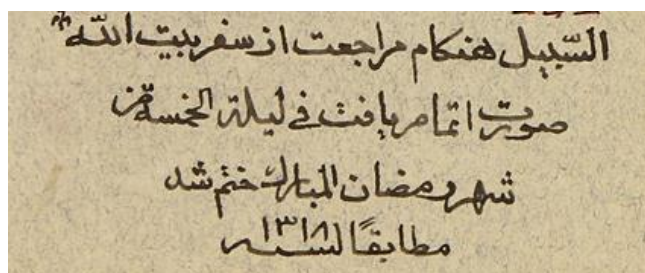 السّبیل هنکام مراجعت از سفر بیت اللّه
صورت اتمام یافت فی لیلة الخمسة من
شهر رمضان المبارك ختم شد
مطابقًا لسنه ۱۳۱۸